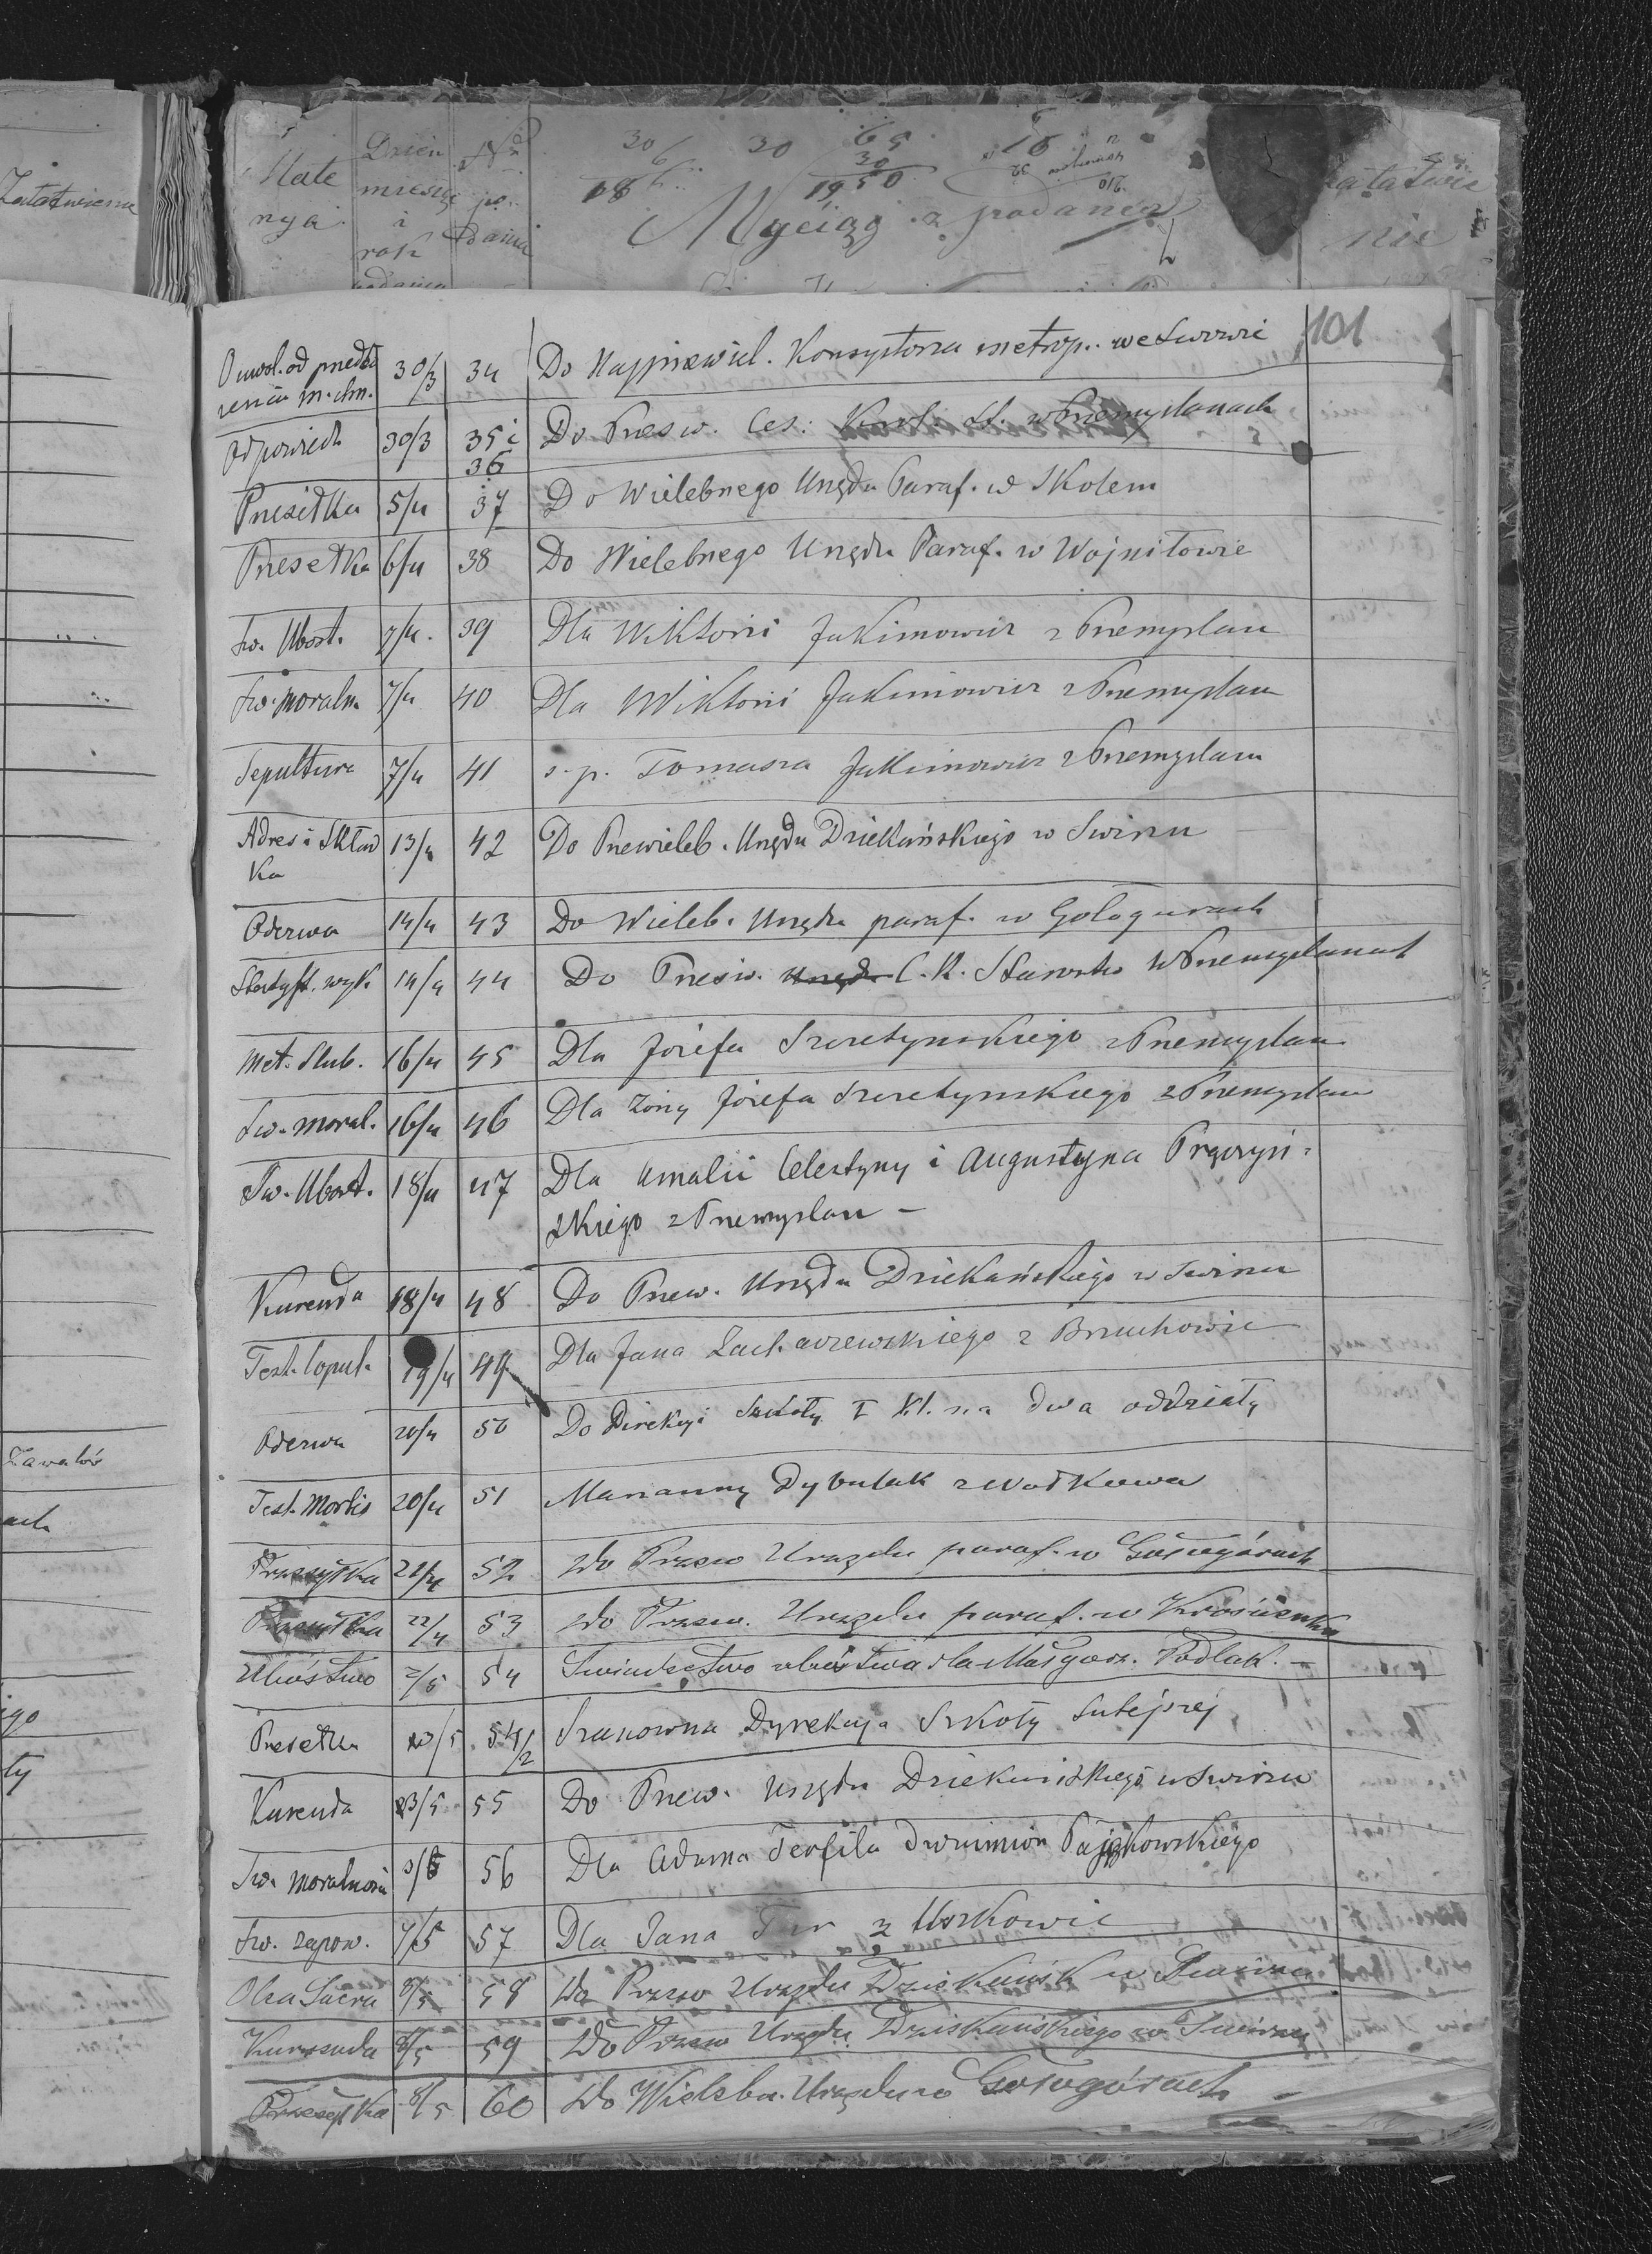 Załatwienie
Mate
ryja
Dzień
miesiąc
i
rok
podania
No
po
dania
30 30 65 15
6 30
186 1950
Wyciąg z podania
załatwie
nie
101
O uwol. od przedło 30/3 34 Do Najprzewiel. Konsystorza metrop. we Lwowie
żenia m. chn.
Odpowiedź 30/3 35 i Do Prześw. Ces: Król. St. w Przemyślanach
36
Przesiłka 5/4 37 Do Wielebnego Urzędu Paraf. w Skolem
Przesełka 6/4 38 Do Wielebnego Urzędu Paraf. w Wojniłowie
Św. Ubost. 7/4. 39 Dla Wiktorii Jakimowicz z Przemyślan
Św. moraln 7/4 40 Dla Wiktorii Jakimowicz z Przemyślan
Sepultura 7/4 41 s.p. Tomasza Jakimowicz z Przemyślan
Adres i Skład 13/4 42 Do Przewieleb. Urzędu Dziekańskiego w Swirzu
ka
Odezwa 14/4 43 Do Wieleb. Urzędu paraf. w Gołogórach
Statyst. wyk 14/4 44 Do Prześw. Urzędu C. K. Starostw. w Przemyślanach
Met. Slub. 16/4 45 Dla Józefa Szeretyńskiego z Przemyślan
Św. moral. 16/4 46 Dla żony Józefa Szeretyńskiego z Przemyślan
Św. Ubost. 18/4 47 Dla Amalii Celestyny i Augustyna Prączyń-
skiego z Przemyślan –
Kurenda 18/4 48 Do Przew. Urzędu Dziekańskiego w Swirzu
Test. Copul. 19/4 49 Dla Jana Zacharzewskiego z Brzuchowic
Odezwa 20/4 50 Do Direkcyi Szkoły I kl. na dwa oddziały
Test. Mortis 20/4 51 Marianny Dybulak z Wołkowa
Przesyłka 21/4 52 Do Przew Urzędu paraf. w Gołogórach
Przesyłka 22/4 53 Do Przew. Urzędu paraf. w Krosienku
Ubóstwo 2/5 54 Świadectwo ubóstwa dla Małgorz. Podlak. –
Przesełka 3/5 54/2 Szanowna Dyrekcya Szkoły tutejszej
Kurenda 3/5 55 Do Przew. Urzędu Dziekańskiego w Swirzu
Św. moralności 3/5 56 Dla Adama Teofila dwuimion Pająkowskiego
Św. zapow. 4/5 57 Dla Jana z Uszkowic
Olea Sacra 8/5 58 Do Przew Urzędu Dziekańsk w Swirzu
Kurenda 8/5 59 Do Przew Urzędu Dziekańskiego w Swirzu
Przesyłka 8/5 60 Do Wieleb. Urzędu w Gołogórach
Zawałów
ach
ego
ty